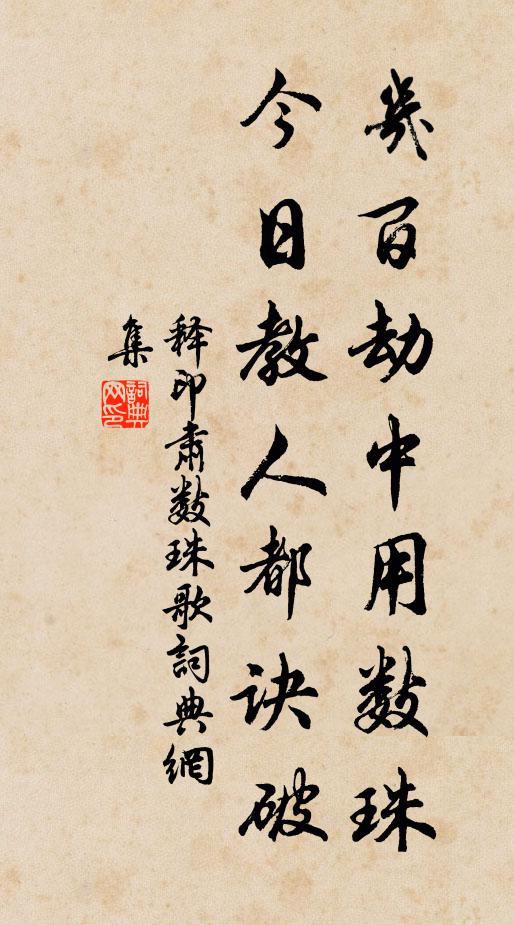 幾百劫中用数珠
今日教人都诀破
释印肃数珠歌詞典網
集
詞典网印